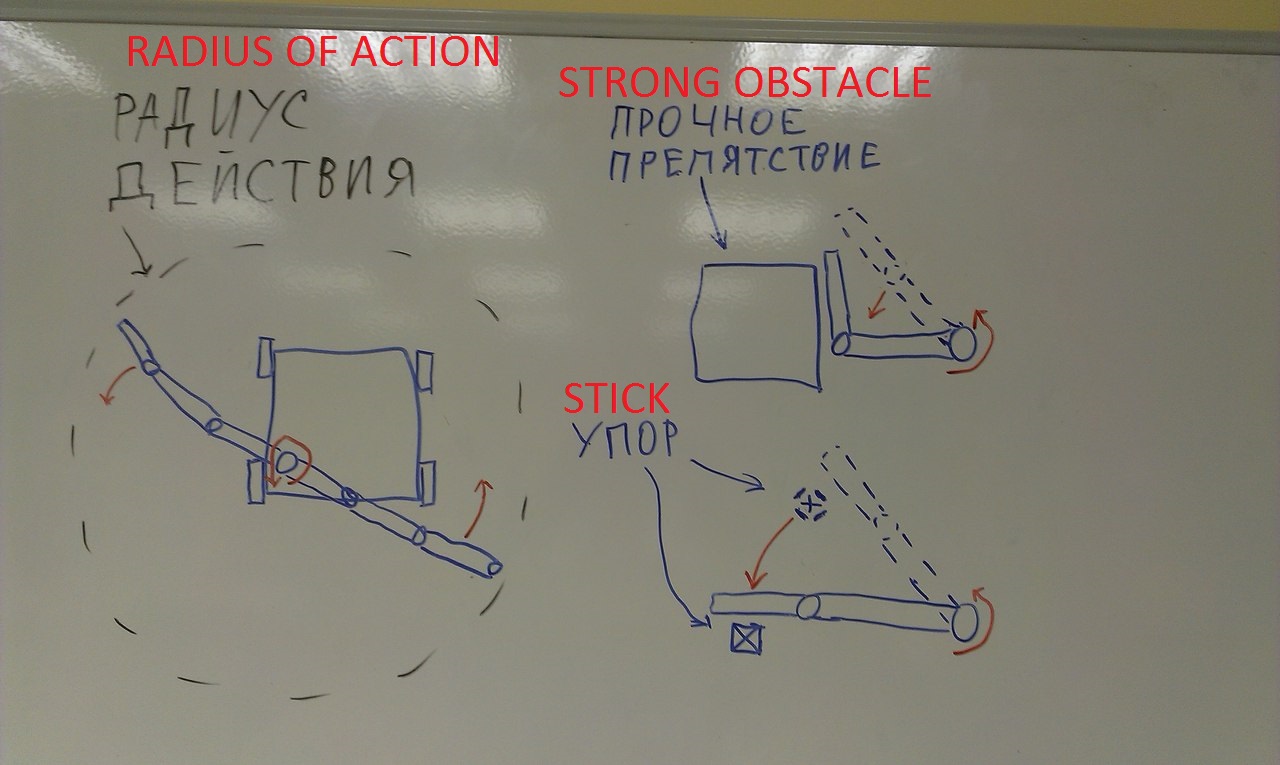 RADIUS OF ACTION
РАДИУС
ДЕЙСТВИЯ
STRONG OBSTACLE
ПРОЧНОЕ
ПРЕПЯТСТВИЕ
STICK
УПОР